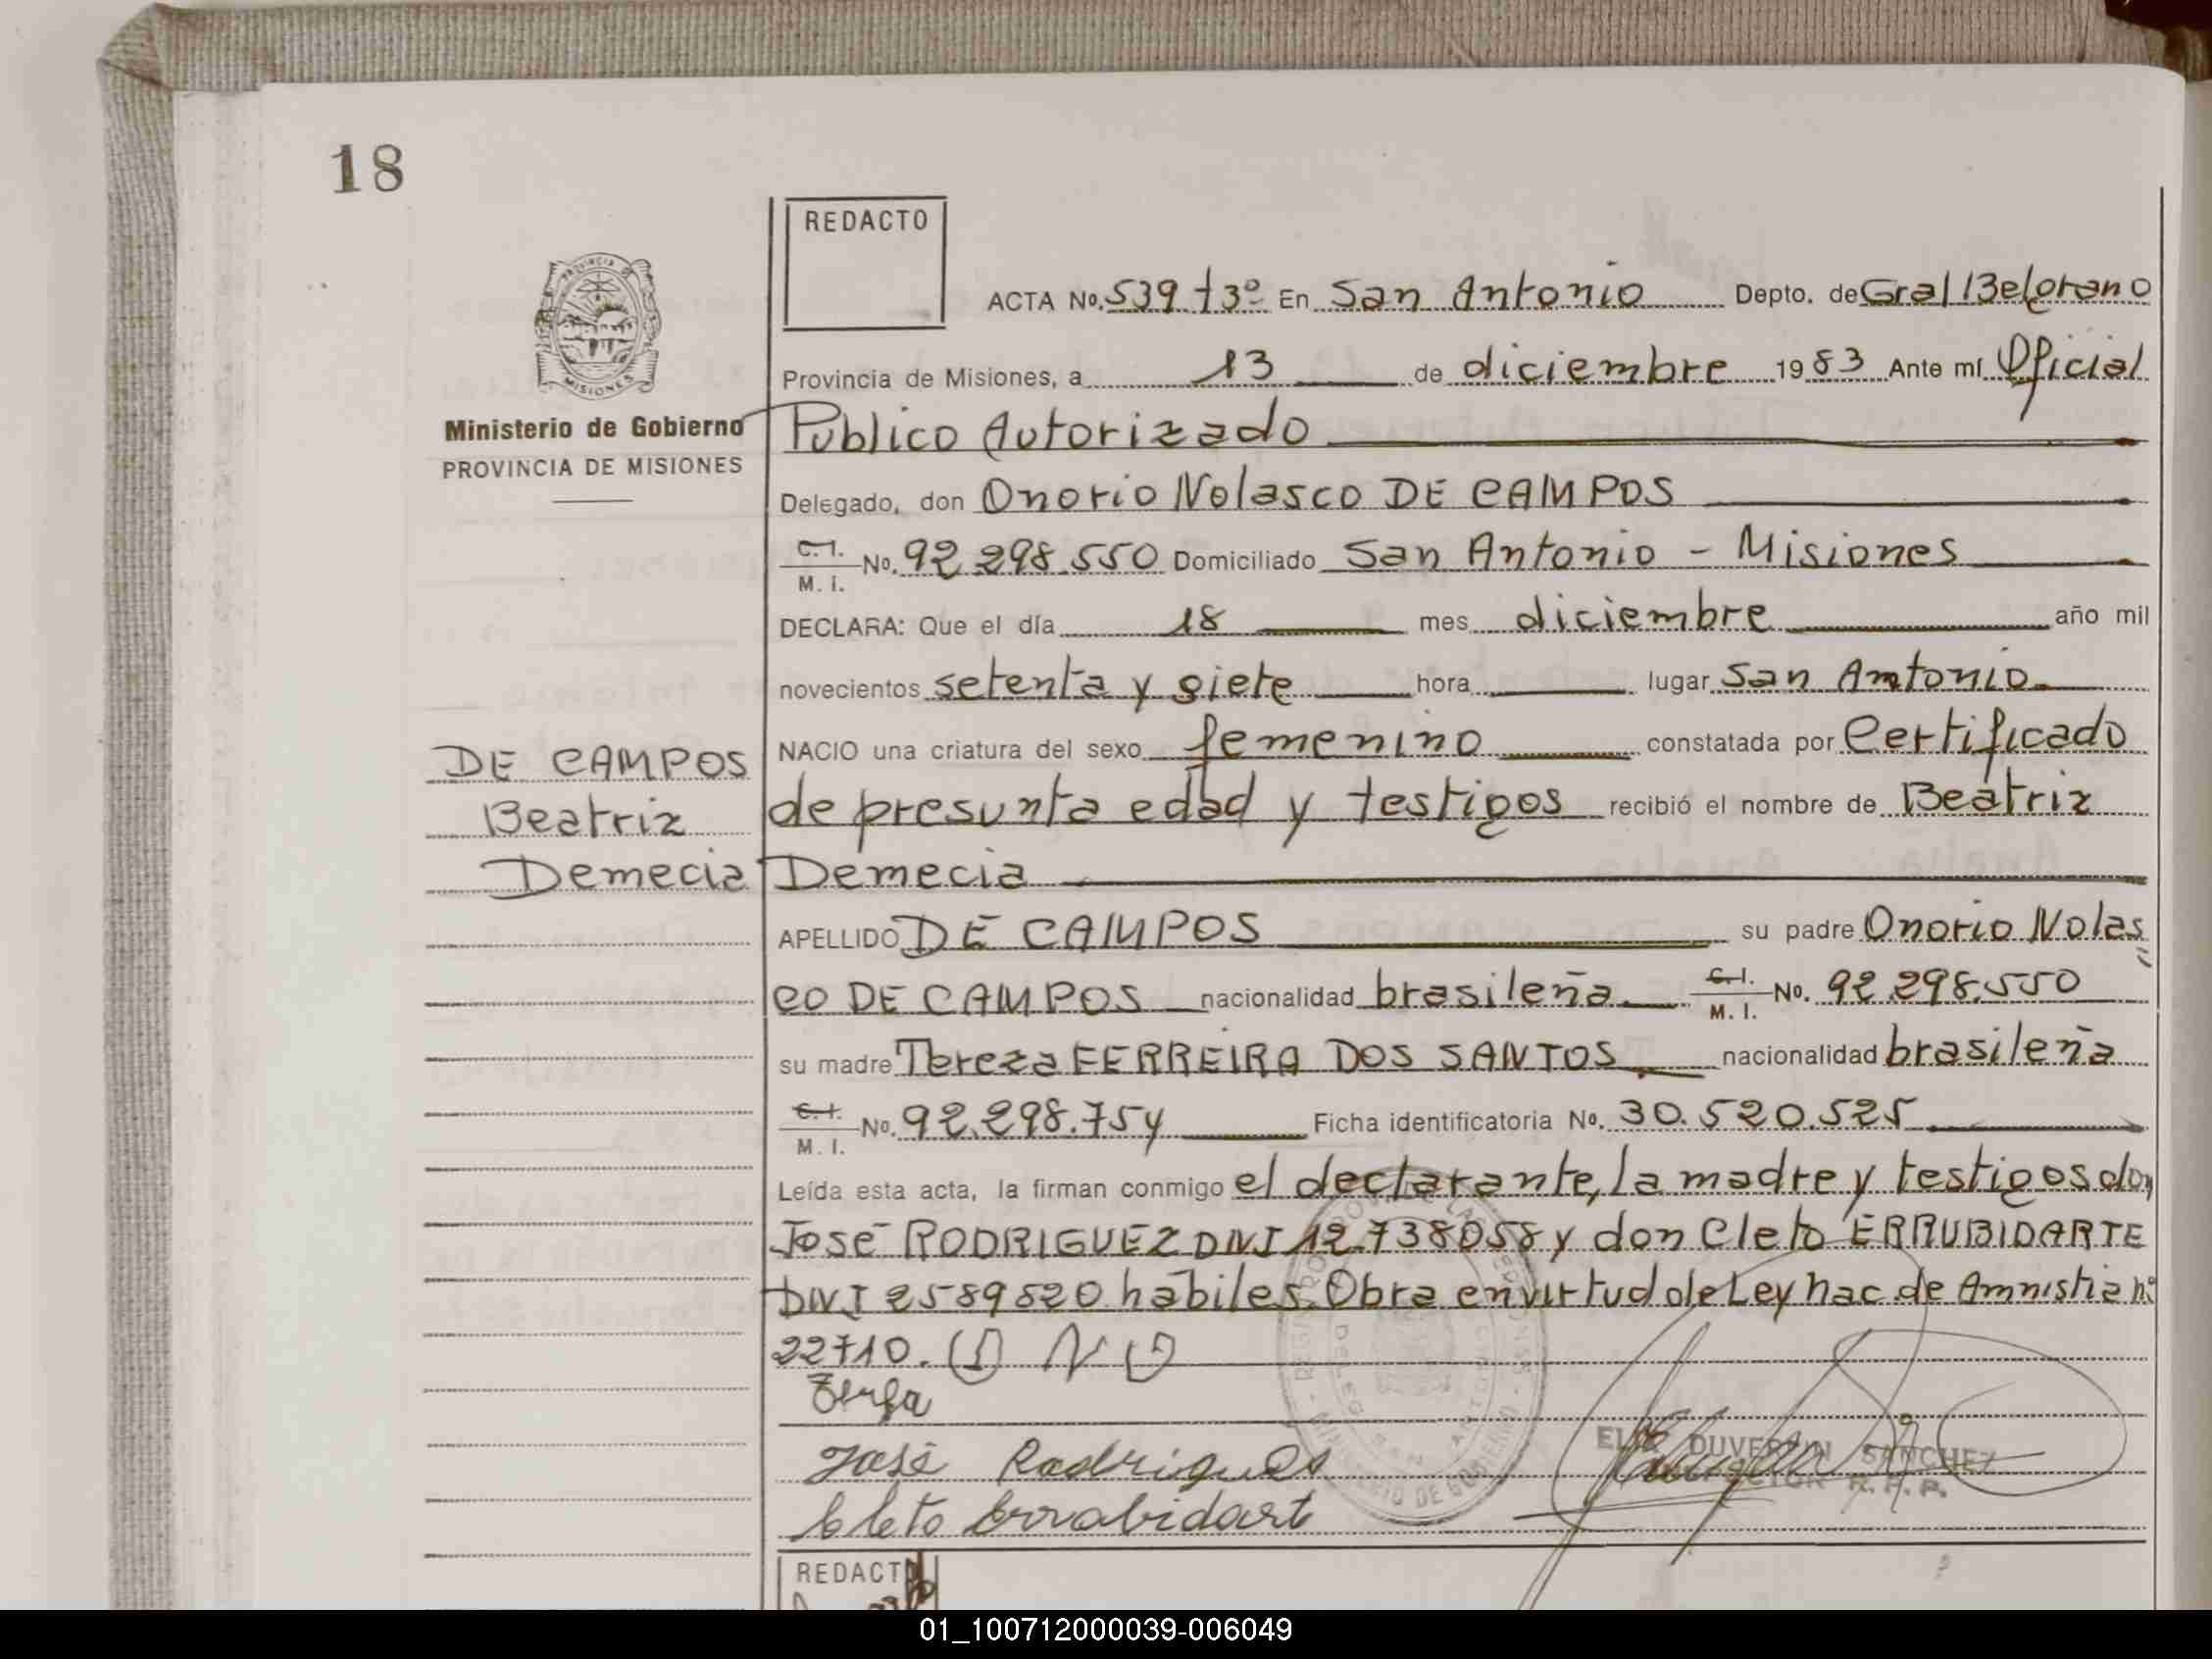 18
REDACTO
ACTA No. 539 T3º En San Antonio Depto. de Gral Belgrano
Provincia de Misiones, a 13 de diciembre 1983 Ante mí Oficial
Ministerio de Gobierno
PROVINCIA DE MISIONES
Publico Autorizado
Delegado, don Onorio Nolasco DE CAMPOS
C.I. M.I. No. 92.298.550 Domiciliado San Antonio - Misiones
DECLARA: Que el día 18 mes diciembre año mil
novecientos setenta y siete hora lugar San Antonio
NACIO una criatura del sexo femenino constatada por Certificado
DE CAMPOS
Beatriz
Demecia
de presunta edad y testigos recibió el nombre de Beatriz
Demecia
APELLIDO DE CAMPOS su padre Onorio Nolas
co DE CAMPOS nacionalidad brasileña C.I. M.I. No. 92.298.550
su madre Tereza FERREIRA DOS SANTOS nacionalidad brasileña
C.I. M.I. No. 92.298.754 Ficha identificatoria No. 30.520.525
Leída esta acta, la firman conmigo el declarante, la madre y testigos don
José RODRIGUEZ DNI 12.738058 y don Cleto ERRUBIDARTE
DNI 2589520 hábiles. Obra en virtud de Ley nac. de Amnistia nº
22710.
José Rodrigues
Cleto Errabidart
DUVERAIN SANCHEZ
REDACTO
01_100712000039-006049